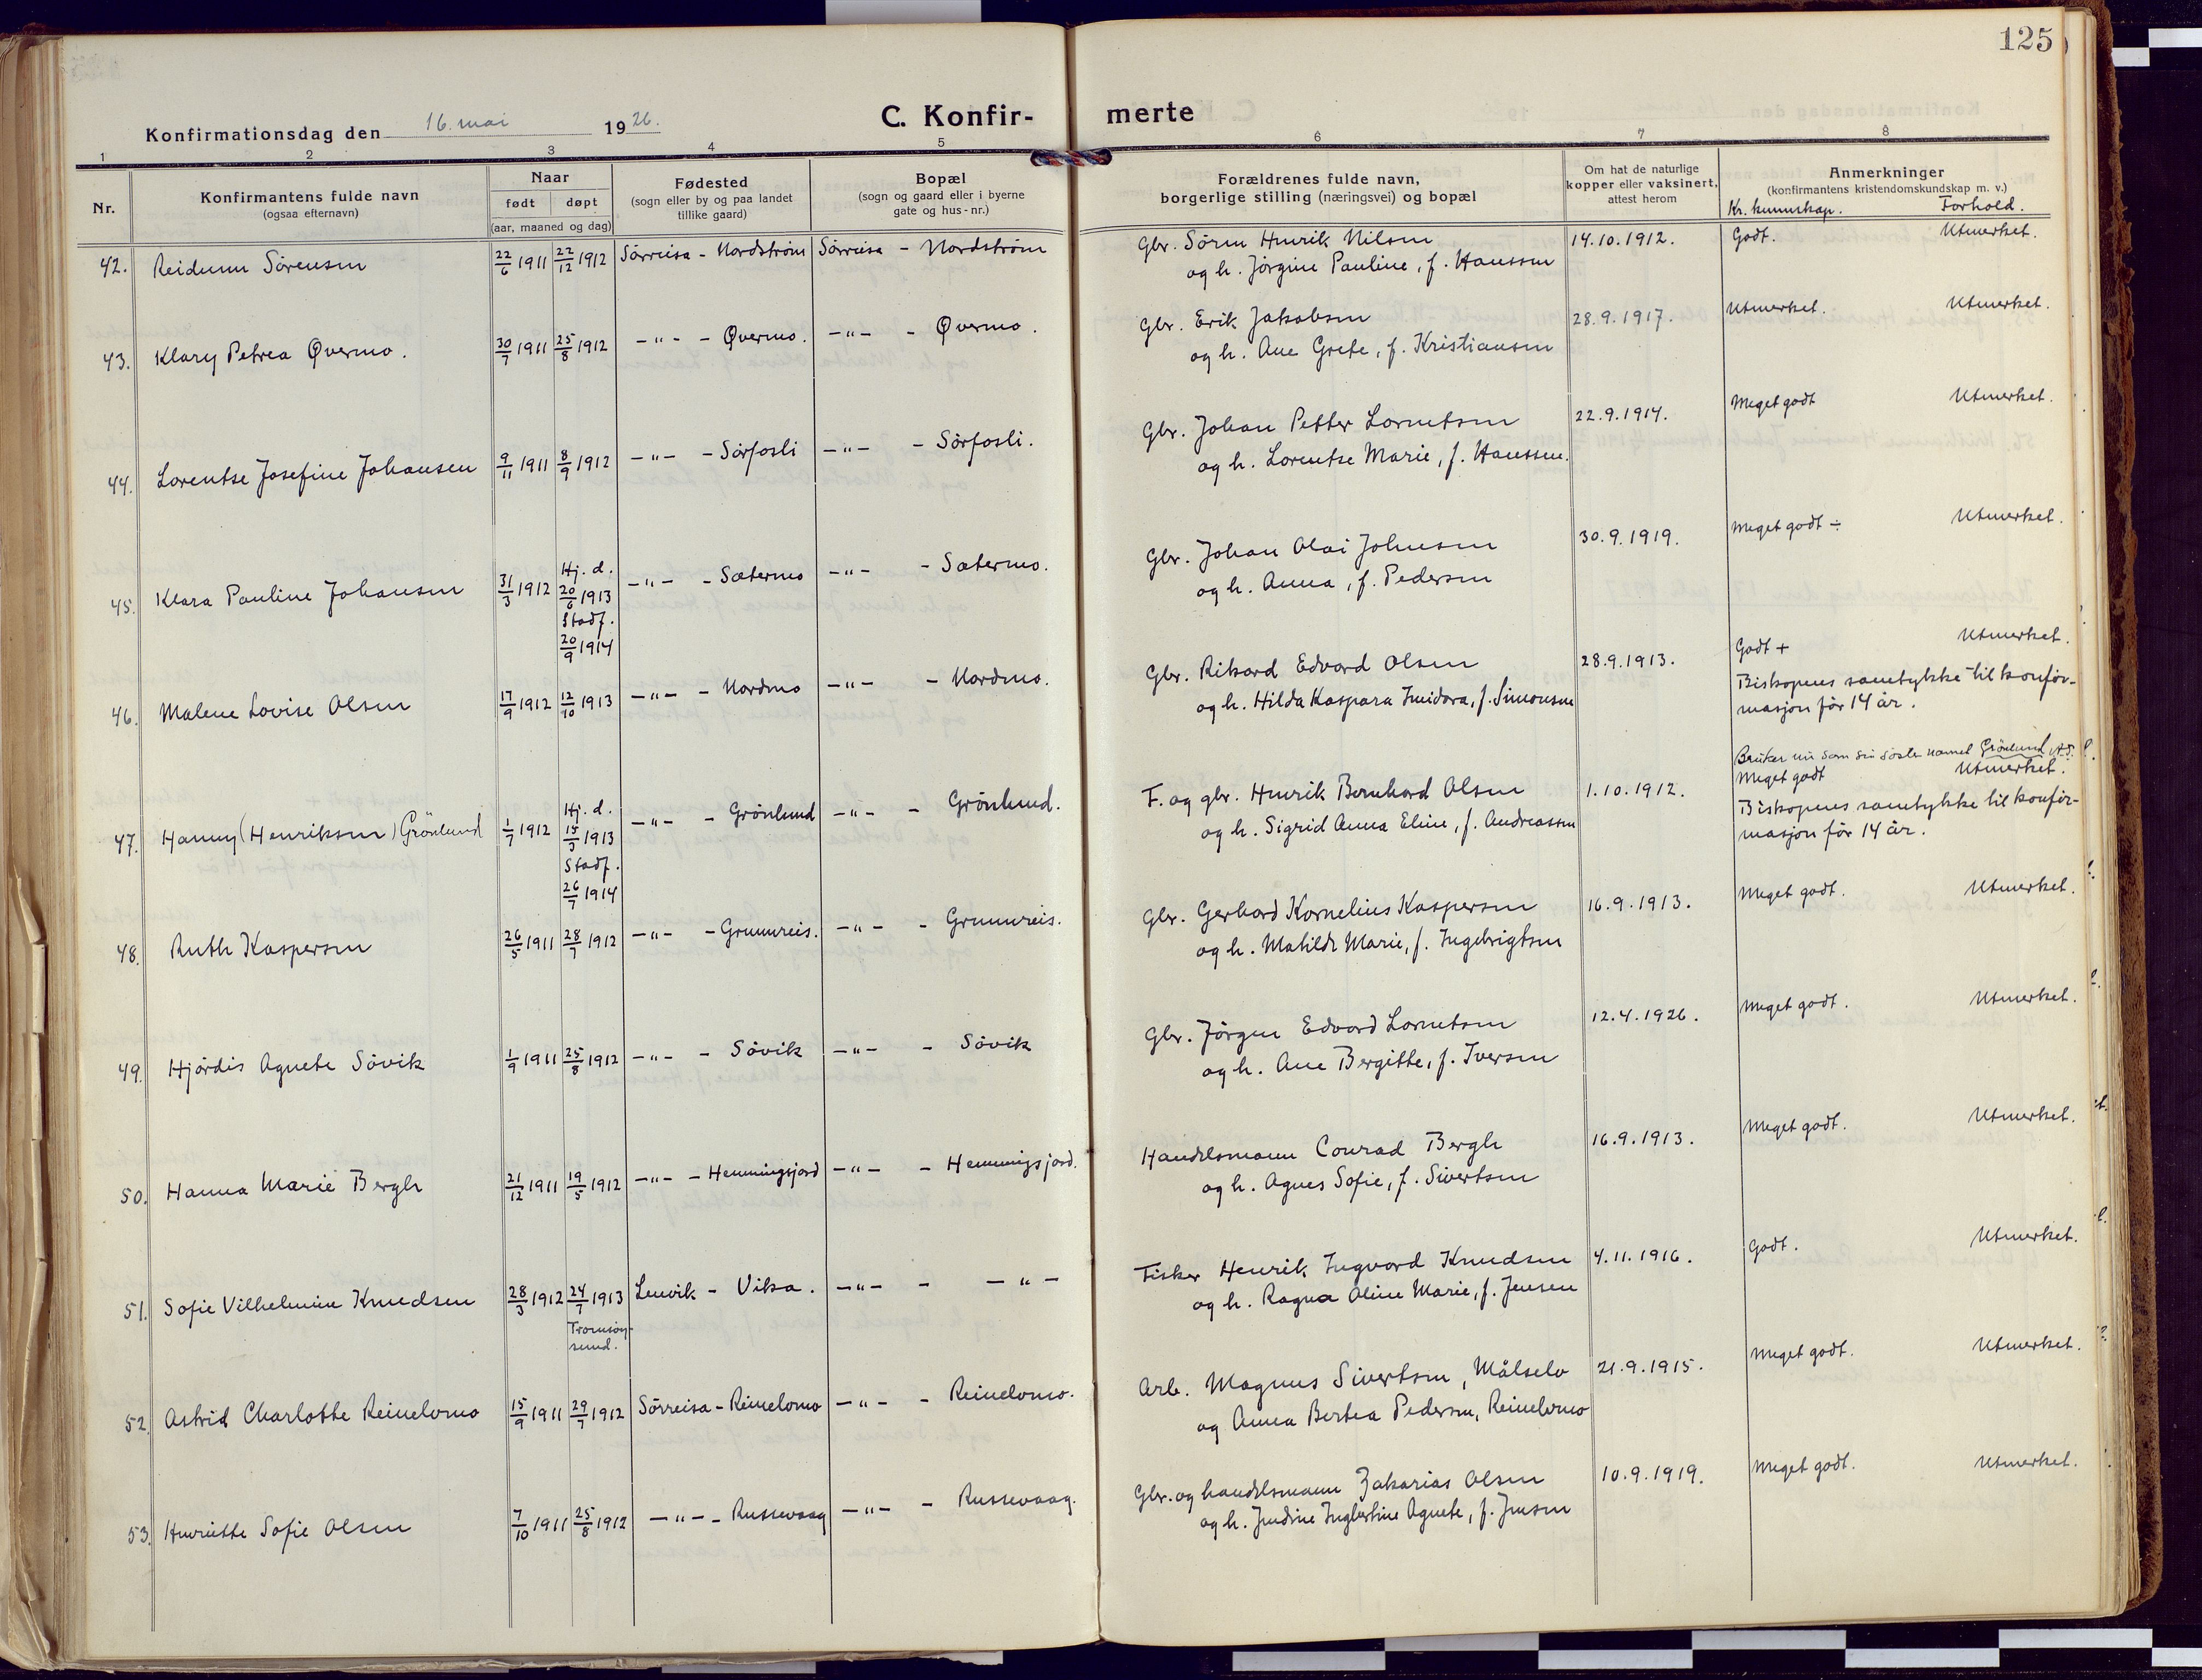 125
Konfirmationsdag den 16. mai 1926.
C. Konfir-merte
1 2 3 4 5 6 7 8
Nr.
Konfirmantens fulde navn
(ogsaa efternavn)
Naar
født døpt
(aar, maaned og dag)
Fødested
(sogn eller by og paa landet
tillike gaard)
Bopæl
(sogn og gaard eller i byerne
gate og hus-nr.)
Forældrenes fulde navn,
borgerlige stilling (næringsvei) og bopæl
Om hat de naturlige
kopper eller vaksinert,
attest herom
Anmerkninger
(konfirmantens kristendomskundskap m. v.)
Kr. kunnskap. Forhold.
42. Reidunn Sörensen 22/6 1911 22/12 1912 Sörreisa - Nordström Sörreisa - Nordström Gbr. Sören Henrik Nilsen 14.10.1912. Godt. Utmerket.
og h. Jörgine Pauline, f. Hanssen
43. Klary Petrea Øvermo. 30/7 1911 25/8 1912 -"- - Øvermo. -"- - Øvermo. Gbr. Erik Jakobsen 28.9.1917. Utmerket. Utmerket.
og h. Ane Grete, f. Kristiansen
44. Lorentse Josefine Johansen 9/11 1911 8/9 1912 -"- - Sörfosli -"- - Sörfosli. Gbr. Johan Petter Lorentsen 22.9.1914. Meget godt Utmerket.
og h. Lorentse Marie, f. Hanssen.
45. Klara Pauline Johansen 31/3 1912 Hj. d. 20/6 1913 Stadf. 20/9 1914 -"- - Sætermo -"- - Sætermo. Gbr. Johan Olai Johnsen 30.9.1919. Meget godt ÷ Utmerket.
og h. Anna, f. Pedersen
46. Malene Lovise Olsen 17/9 1912 12/10 1913 -"- - Nordmo -"- - Nordmo. Gbr. Rikard Edvard Olsen 28.9.1913. Godt + Utmerket.
og h. Hilda Kaspara Indidora, f. Simonsen
Biskopens samtykke til konfir-
masjon før 14 år.
47. Hanny (Henriksen) Grönlund 1/7 1912 Hj. d. 15/3 1913 Stadf. 26/7 1914 -"- - Grönlund -"- - Grönlund. F. og gbr. Henrik Bernhard Olsen 1.10.1912.
og h. Sigrid Anna Eline, f. Andreassen
Bruker nu som sin søster navnet Grönlund
Meget godt Utmerket.
Biskopens samtykke til konfir-
masjon før 14 år.
48. Ruth Kaspersen 26/5 1911 28/7 1912 -"- - Grunnreis. -"- - Grunnreis. Gbr. Gerhard Kornelius Kaspersen 16.9.1913. Meget godt. Utmerket.
og h. Matilde Marie, f. Ingebrigtsen
49. Hjördis Agnete Sövik 1/9 1911 25/8 1912 -"- - Sövik -"- - Sövik Gbr. Jörgen Edvard Lorentsen 12.4.1926. Meget godt. Utmerket.
og h. Ane Bergitte, f. Iversen
50. Hanna Marie Bergh 21/12 1911 19/5 1912 -"- - Hemmingsjord -"- - Hemmingsjord. Handelsmann Conrad Bergh 16.9.1913. Meget godt. Utmerket.
og h. Agnes Sofie, f. Sivertsen
51. Sofie Vilhelmine Knudsen 28/3 1912 24/7 1913 Tromsöy-sund. Lenvik - Vika. -"- - -"- Fisker Henrik Ingvard Knudsen 4.11.1916. Godt. Utmerket.
og h. Ragna Oline Marie, f. Jensen
52. Astrid Charlotte Reinelvmo 15/9 1911 29/7 1912 Sörreisa - Reinelvmo -"- - Reinelvmo. Arb. Magnus Sivertsen, Målselv 21.9.1915. Meget godt. Utmerket.
og Anna Bertea Pedersen, Reinelvmo
53. Henriette Sofie Olsen 7/10 1911 25/8 1912 -"- - Russevaag -"- - Russevaag. Gbr. og handelsmann Zakarias Olsen 10.9.1919. Meget godt. Utmerket.
og h. Jendine Ingbertine Agnete, f. Jensen